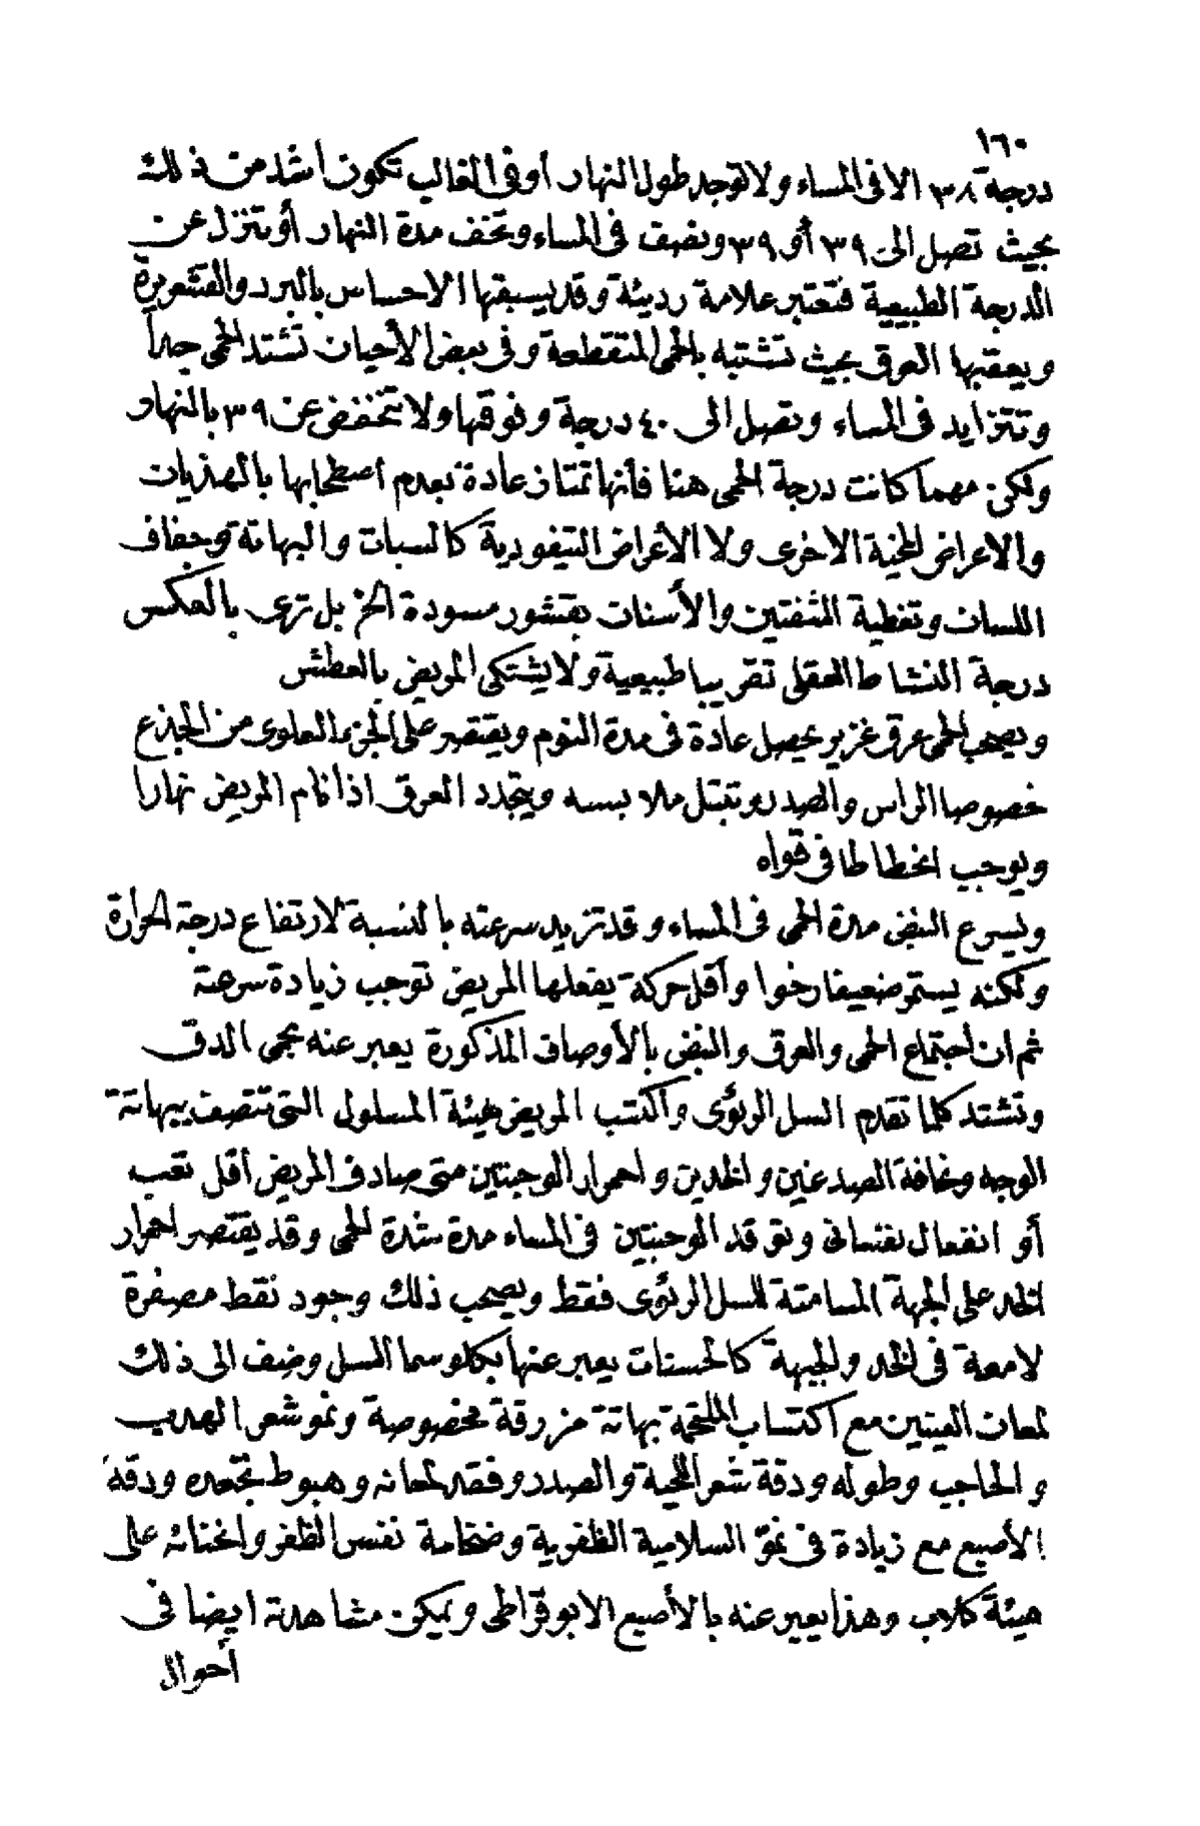 ١٦٠
درجة ٣٨ الا فى المساء ولا توجد طول النهار أو فى الغالب تكون اشد من ذلك
بحيث تصل الى ٣٩ أو ٣٩ ونصف فى المساء وتخف مدة النهار أو تنزل عن
الدرجة الطبيعية فتعتبر علامة رديئة وقد يسبقها الاحساس بالبرد والقشعريرة
ويعقبها العرق بحيث تشتبه بالحمى المتقطعة وفى بعض الأحيان تشتد الحمى جداً
وتتزايد فى المساء وتصل الى ٤٠ درجة وفوقها ولا تنخفض عن ٣٩ بالنهار
ولكن مهما كانت درجة الحمى هنا فأنها تمتاز عادة بعدم اصطحابها بالهذيان
والاعراض المخية الاخرى ولا الأعراض التيفودية كالسبات والبهاتة وجفاف
اللسان وتغطية الشفتين والأسنان بقشور مسودة الخ بل ترى بالعكس
درجة النشاط العقلى تقريبا طبيعية ولا يشتكى المريض بالعطش
ويصحب الحمى عرق غزير يحصل عادة فى مدة النوم ويقتصر على الجزء العلوى من الجذع
خصوصا الراس والصدر وتبتل ملابسه ويتجدد العرق اذا نام المريض نهارا
ويوجب انحطاطا فى قواه
ويسرع النبض مدة الحمى فى المساء وقد تزيد سرعته بالنسبة لارتفاع درجة الحرارة
ولكنه يستمر ضعيفا رخوا وأقل حركة يفعلها المريض توجب زيادة سرعته
ثم ان اجتماع الحمى والعرق والنبض بالأوصاف المذكورة يعبر عنه بحمى الدق
وتشتد كلما تقدم السل الرئوى واكتسب المريض هيئة المسلول التى تتصف ببهاتة
الوجه ونحافة الصدغين والخدين واحمرار الوجنتين متى صادف المريض أقل تعب
أو انفعال نفسانى وتوقد الوجنتين فى المساء مدة شدة الحمى وقد يقتصر احمرار
الخد على الجهة المسامتة للسل الرئوى فقط ويصحب ذلك وجود نقط مصفرة
لامعة فى الخد والجبهة كالحسنات يعبر عنها بكلوسما السل وضف الى ذلك
لمعان العينين مع اكتساب الملتحمة بهاتة مزرقة مخصوصة ونمو شعر الهدب
والحاجب وطوله ودقة شعر اللحية والصدر وفقد لمعانه وهبوط تجعده ودقة
الأصبع مع زيادة فى نموّ السلامية الظفرية وضخامة نفس الظفر وانحنائه على
هيئة كلاب وهذا يعبر عنه بالأصبع الابوقراطى ويمكن مشاهدته ايضا فى
أحوال